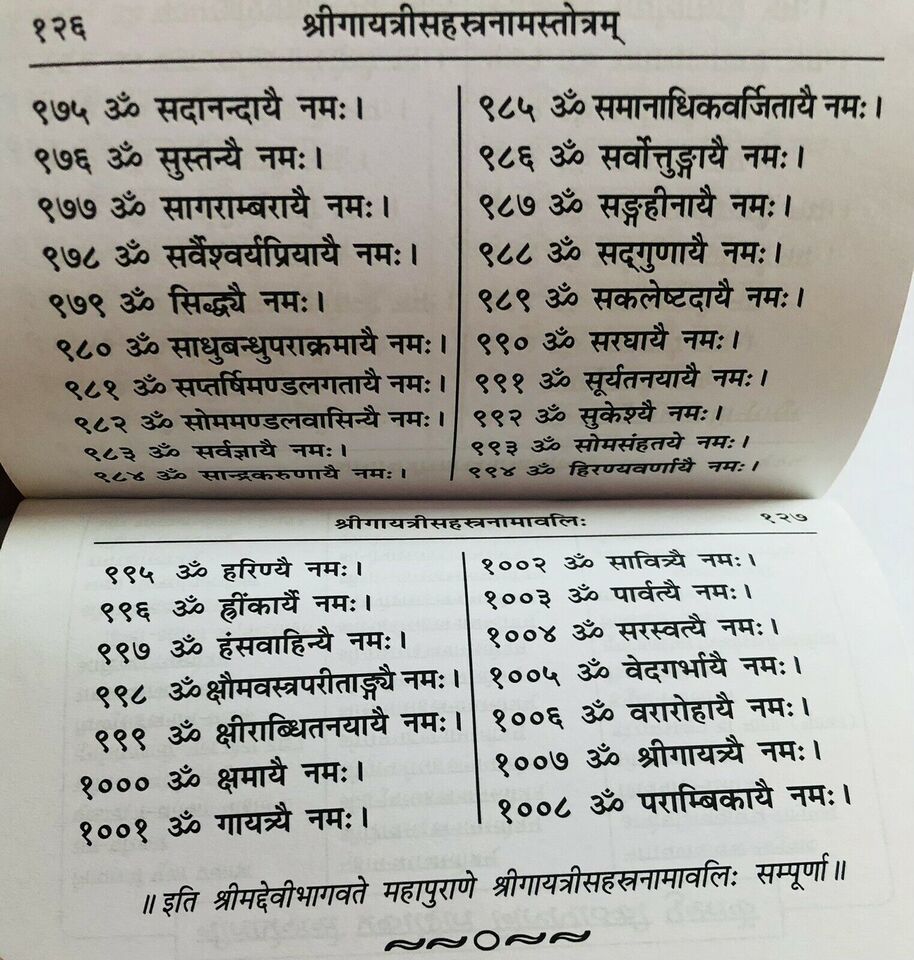 १२६ श्रीगायत्रीसहस्रनामस्तोत्रम्
९७५ ॐ सदानन्दायै नमः।
९७६ ॐ सुस्तन्यै नमः।
९७७ ॐ सागराम्बरायै नमः।
९७८ ॐ सर्वैश्वर्यप्रियायै नमः।
९७९ ॐ सिद्ध्यै नमः।
९८० ॐ साधुबन्धुपराक्रमायै नमः।
९८१ ॐ सप्तर्षिमण्डलगतायै नमः।
९८२ ॐ सोममण्डलवासिन्यै नमः।
९८३ ॐ सर्वज्ञायै नमः।
९८४ ॐ सान्द्रकरुणायै नमः।
९८५ ॐ समानाधिकवर्जितायै नमः।
९८६ ॐ सर्वोत्तुङ्गायै नमः।
९८७ ॐ सङ्गहीनायै नमः।
९८८ ॐ सद्‌गुणायै नमः।
९८९ ॐ सकलेष्टदायै नमः।
९९० ॐ सरघायै नमः।
९९१ ॐ सूर्यतनयायै नमः।
९९२ ॐ सुकेश्यै नमः।
९९३ ॐ सोमसंहतये नमः।
९९४ ॐ हिरण्यवर्णायै नमः।
श्रीगायत्रीसहस्रनामावलिः १२७
९९५ ॐ हरिण्यै नमः।
९९६ ॐ ह्रींकार्यै नमः।
९९७ ॐ हंसवाहिन्यै नमः।
९९८ ॐ क्षौमवस्त्रपरीताङ्ग्यै नमः।
९९९ ॐ क्षीराब्धितनयायै नमः।
१००० ॐ क्षमायै नमः।
१००१ ॐ गायत्र्यै नमः।
१००२ ॐ सावित्र्यै नमः।
१००३ ॐ पार्वत्यै नमः।
१००४ ॐ सरस्वत्यै नमः।
१००५ ॐ वेदगर्भायै नमः।
१००६ ॐ वरारोहायै नमः।
१००७ ॐ श्रीगायत्र्यै नमः।
१००८ ॐ पराम्बिकायै नमः।
॥ इति श्रीमद्देवीभागवते महापुराणे श्रीगायत्रीसहस्रनामावलिः सम्पूर्णा॥